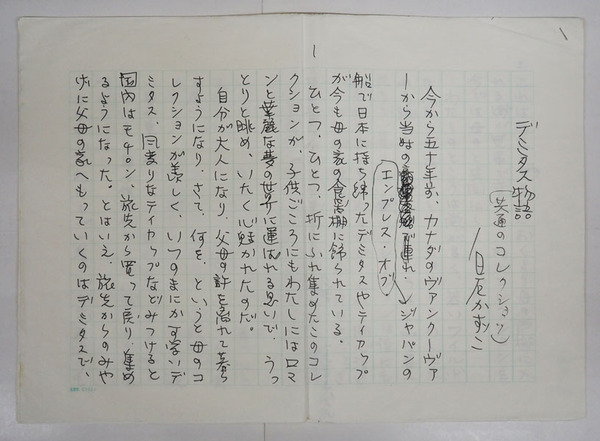 デミタス物語
(共通のコレクション)
白石かずこ
今から五十年前、カナダのヴァンクーヴァ
ーから当時の
が連れ、
エンプレス・オブ
ジャパンの
船で日本に持ち帰ったデミタスやティカップ
が今も母の家の食器棚に飾られている。
ひとつ、ひとつ、折にふれ集めたこのコレ
クションが、子供ごころにもわたしにはロマ
ンと華麗な夢の世界に運ばれる思いで、うっ
とりと眺め、いたく心魅かれたのだ。
自分が大人になり、父母の許を離れて暮ら
すようになり、さて、何を、というと母のコ
レクションが羨しく、いつのまにか可愛いデ
ミタス、風変りなティカップなどみつけると
国内はモチロン、旅先から買って戻り、集め
るようになった。とはいえ、旅先からのみや
げに父母の家へもっていくのはデミタスで、
1